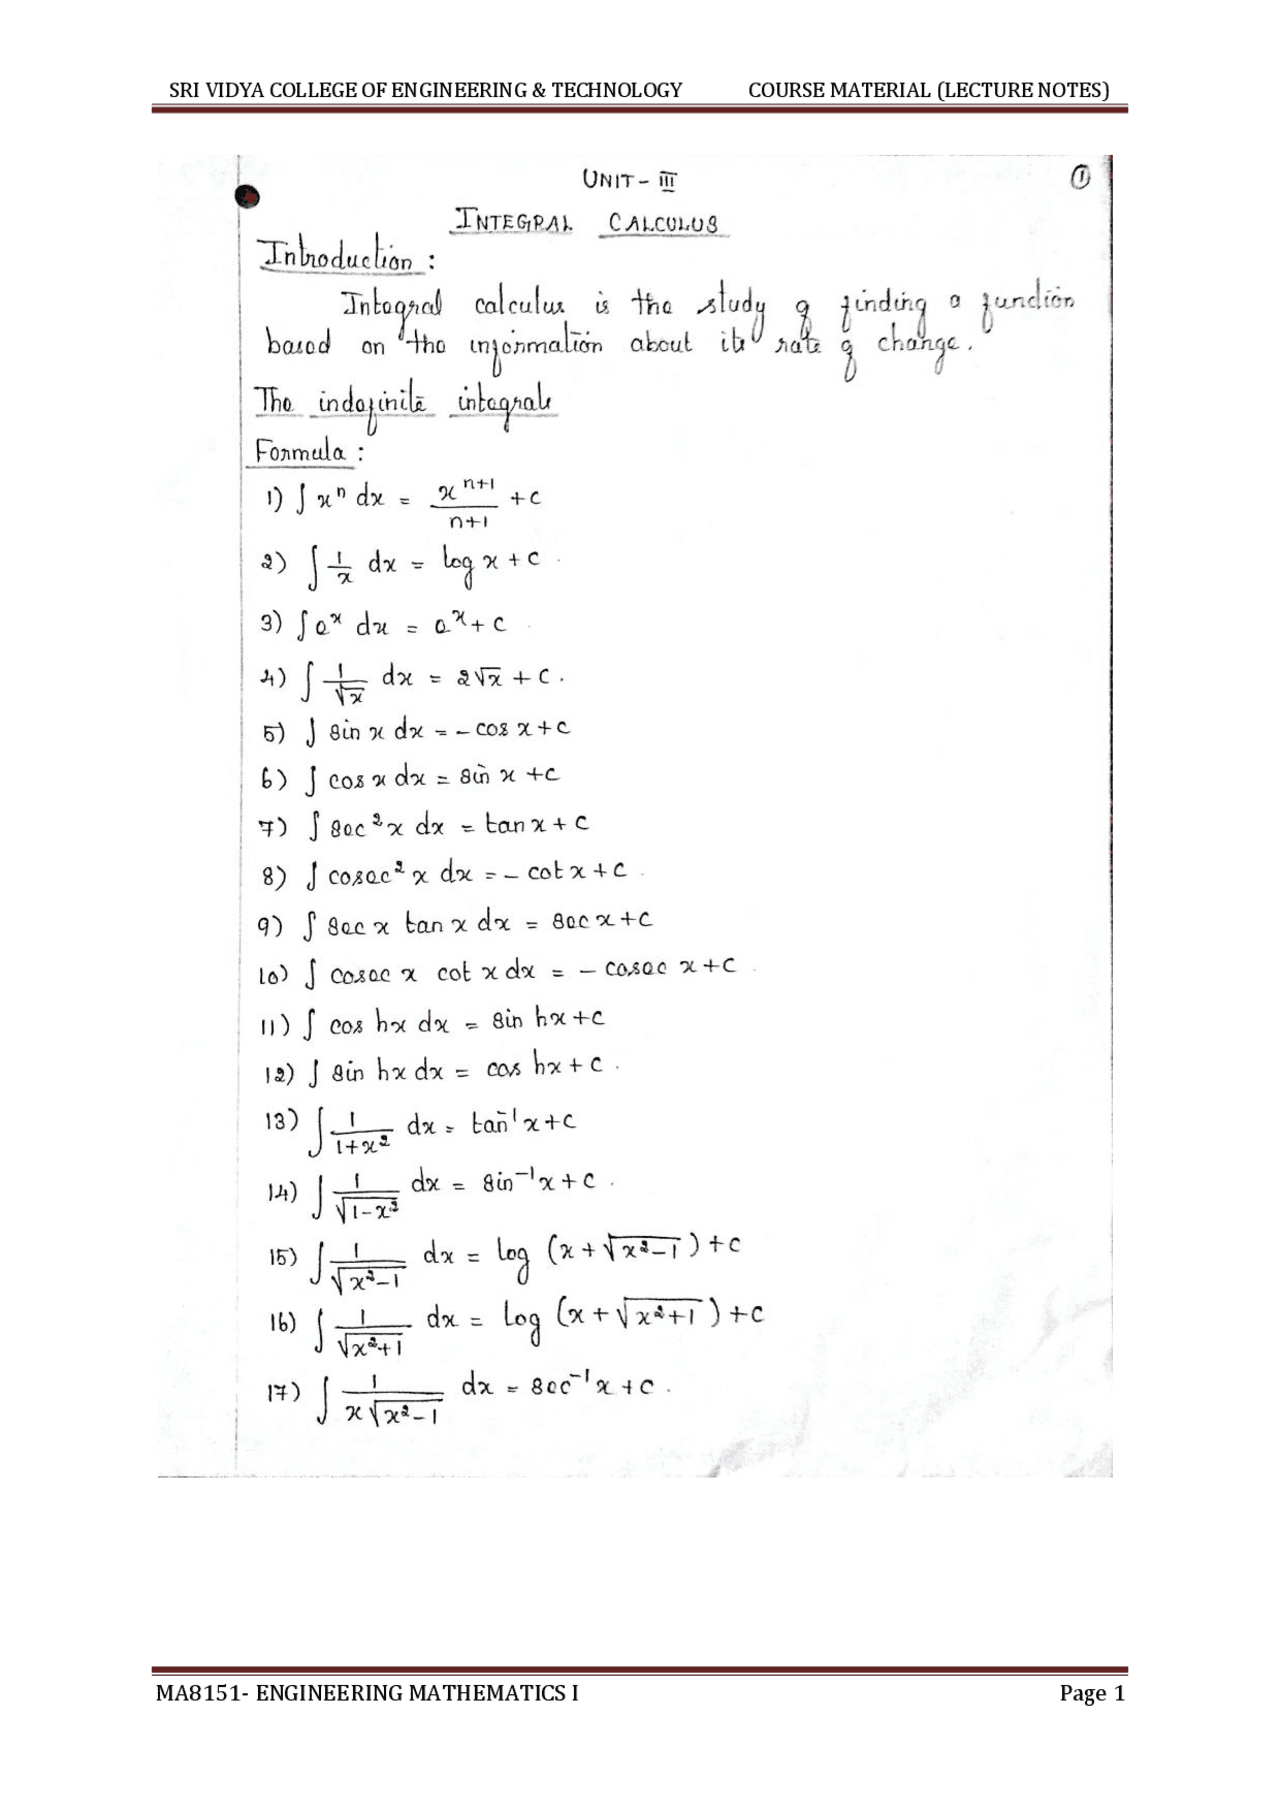 SRI VIDYA COLLEGE OF ENGINEERING & TECHNOLOGY COURSE MATERIAL (LECTURE NOTES)
UNIT - III ①
INTEGRAL CALCULUS
Introduction :
Integral calculus is the study of finding a function
based on the information about its rate of change.
The indefinite integrals
Formula :
1) ∫ xⁿ dx = x^(n+1)/(n+1) + c
2) ∫ 1/x dx = log x + c
3) ∫ e^x dx = e^x + c
4) ∫ 1/√x dx = 2√x + c.
5) ∫ sin x dx = - cos x + c
6) ∫ cos x dx = sin x + c
7) ∫ sec² x dx = tan x + c
8) ∫ cosec² x dx = - cot x + c
9) ∫ sec x tan x dx = sec x + c
10) ∫ cosec x cot x dx = - cosec x + c
11) ∫ cos hx dx = sin hx + c
12) ∫ sin hx dx = cos hx + c.
13) ∫ 1/(1+x²) dx = tan⁻¹ x + c
14) ∫ 1/√(1-x²) dx = sin⁻¹ x + c.
15) ∫ 1/√(x²-1) dx = log (x + √(x²-1)) + c
16) ∫ 1/√(x²+1) dx = log (x + √(x²+1)) + c
17) ∫ 1/(x√(x²-1)) dx = sec⁻¹ x + c.
MA8151- ENGINEERING MATHEMATICS I Page 1